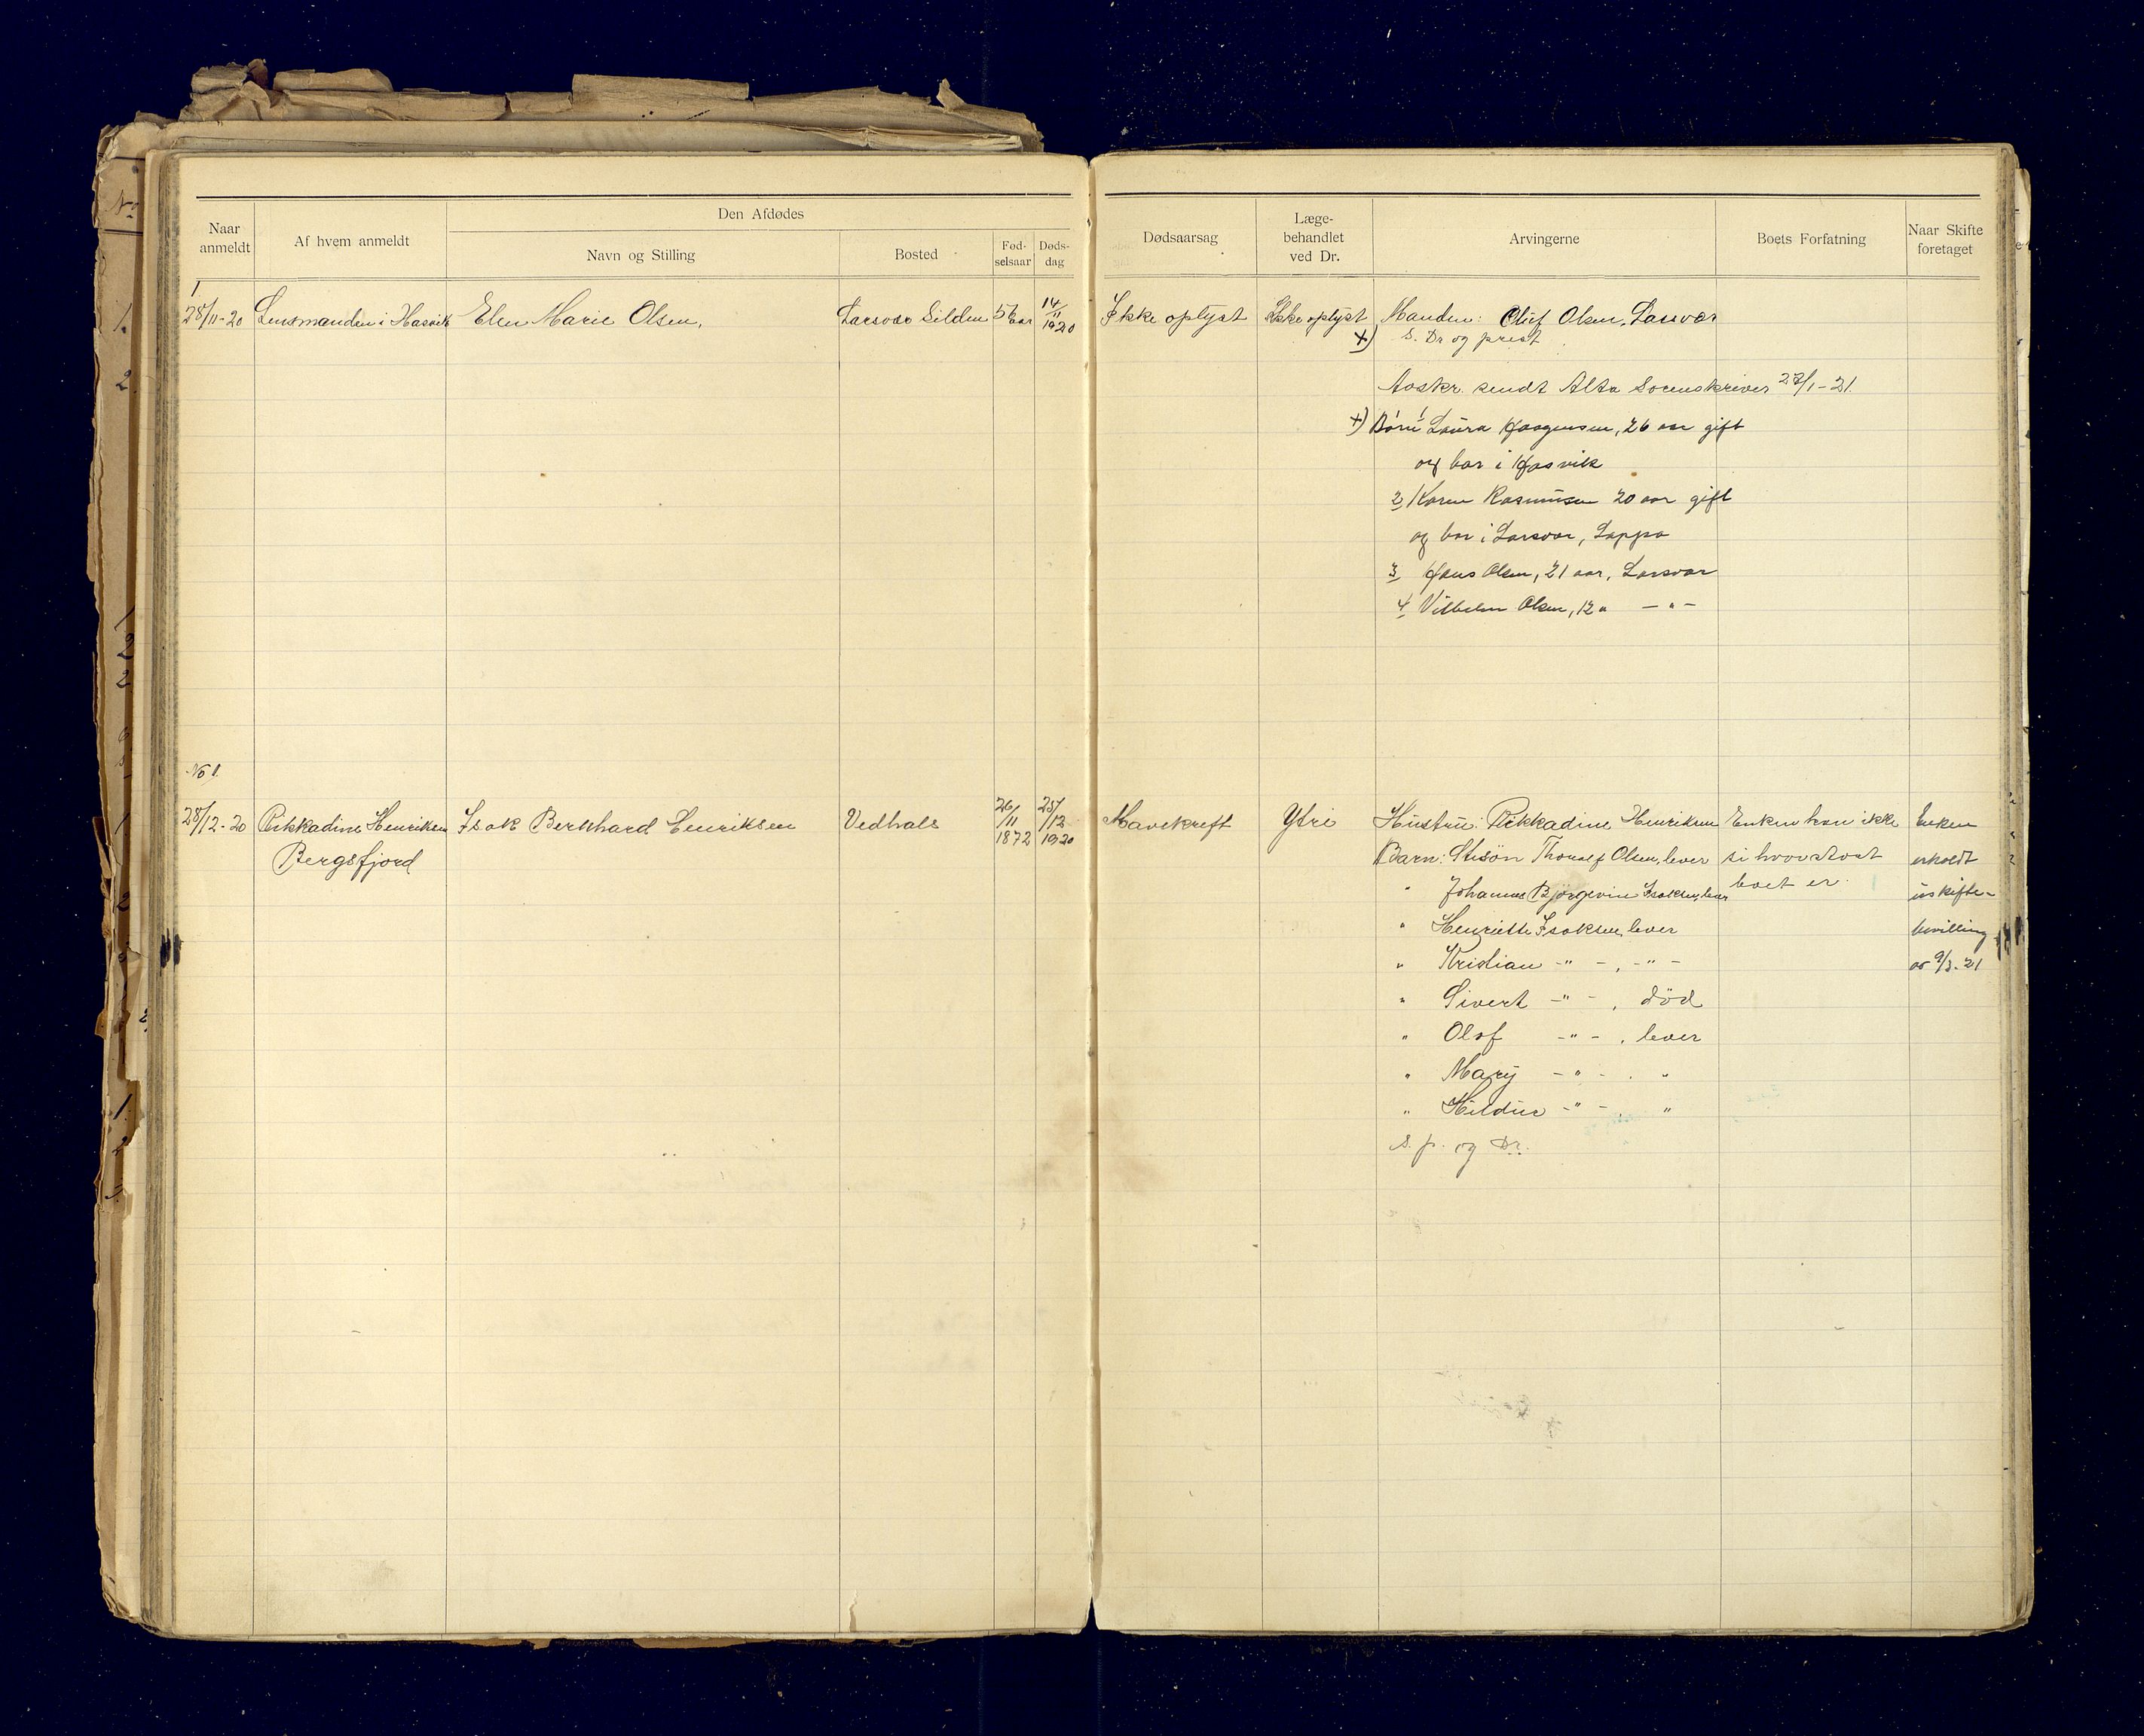 Naar anmeldt
Af hvem anmeldt
Den Afdødes
Navn og Stilling
Bosted
Fød-
selsaar
Døds-
dag
Dødsaarsag
Læge-
behandlet
ved Dr.
Arvingerne
Boets Forfatning
Naar Skifte
foretaget
1
28/11-20 Lensmanden i Hasvik Elen Marie Olsen, Larsvar Silden 56 aar 14/11 1920 Ikke oplyst Ikke oplyst Manden: Oluf Olsen, Larsvar
+) S. Dr og prest
Avskr. sendt Alta Sorenskriver 27/1-21.
+) Børn 1 Laura Haagensen, 26 aar gift
og bor i Hasvik
2 Karen Rasmussen 20 aar gift
og bor i Larsvar, Loppa
3 Hans Olsen, 21 aar, Larsvar
4 Vilhelm Olsen, 12 " — " —
No 1.
28/12-20 Rikkadine Henriksen
Bergsfjord
Isak Bernhard Henriksen
Vedhals
26/11
1872
25/12
1920
Mavekreft
Ytre
Hustru: Rikkadine Henriksen
Barn: Stesøn Thoralf Olsen, lever
" Johannes Bjørgvin Isaksen, lever
" Henriette Isaksen, lever
" Kristian -"-, -"-
" Sivert -"-, död
" Olaf -"-, lever
" Mary -"-. "
" Hildur -"-. "
S. p. og Dr.
Enken kan ikke
si hvorstort
boet er.
Enken
erholdt
uskifte-
bevilling
av 9/3-21